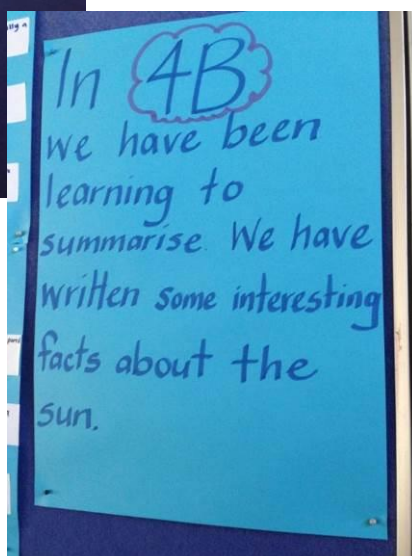 In 4B
we have been
learning to
summarise. We have
written some interesting
facts about the
sun.